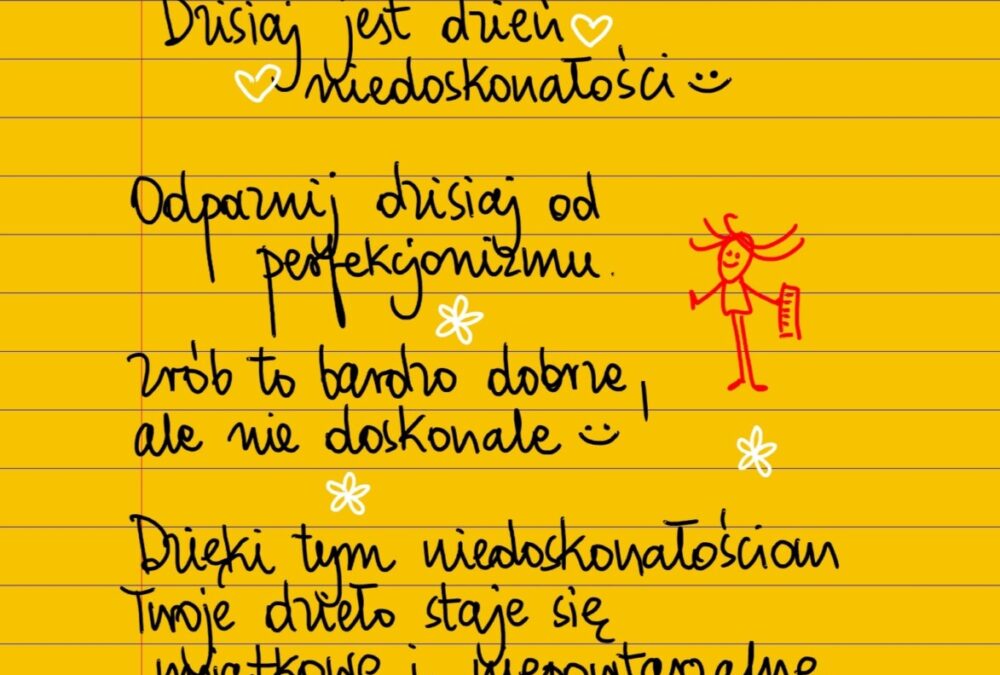 Dzisiaj jest dzień
niedoskonałości
Odpocznij dzisiaj od
perfekcjonizmu.
Zrób to bardzo dobrze,
ale nie doskonale
Dzięki tym niedoskonałościom
Twoje dzieło staje się
wyjątkowe i niepowtarzalne